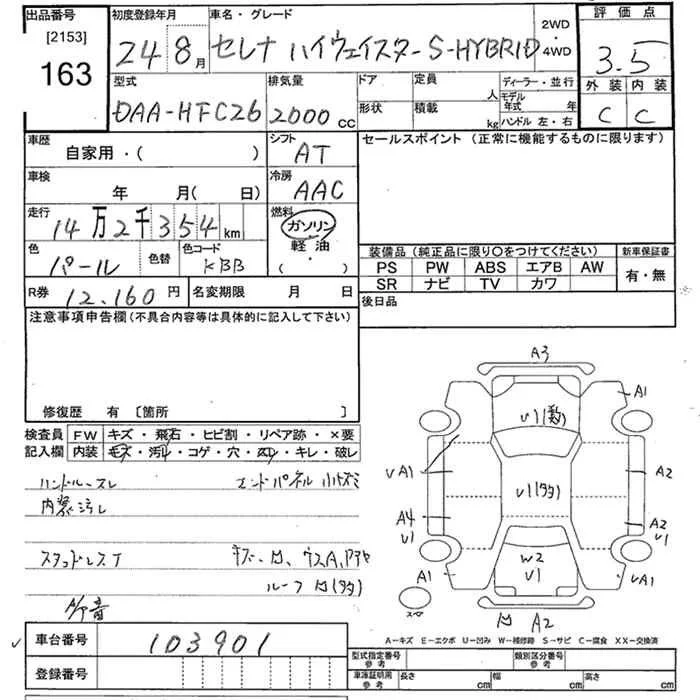 出品番号 初度登録年月 車名・グレード 2WD ・ 4WD 評価点
[2153]
163
24 8月 セレナ ハイウェイスターS-HYBRID 3.5
型式 排気量 ドア 定員 人 ディーラー・並行 外装 内装
DAA-HFC26 2000cc 形状 積載 kg モデル年式 年 ハンドル 左・右 C C
車歴 自家用・( ) シフト AT セールスポイント (正常に機能するものに限ります)
車検 年 月( 日) 冷房 AAC
走行 14万2千354km 燃料 ガソリン 軽油 ・( )
色 パール 色替 色コード KBB
装備品(純正品に限り○をつけてください) 新車保証書
PS PW ABS エアB AW 有・無
SR ナビ TV カワ
R券 12,160円 名変期限 月 日 後日品
注意事項申告欄(不具合内容等は具体的に記入して下さい)
修復歴 有 [箇所 ]
検査員 FW キズ・飛石・ヒビ割・リペア跡・×要
記入欄 内装 キズ・汚れ・コゲ・穴・スレ・キレ・破レ
ハンドルースレ エンドパネル
内装汚し
スタッドレスT
ルーフ
A3
A1
U1
VA1 U1 A2
A4 U1 A2 U1
W2 U1
A1 UA1
A2
車台番号 103901
登録番号
A−キズ E−エクボ U−凹み W−補修跡 S−サビ C−腐食 XX−交換済
型式指定番号 参考 類別区分番号 参考
車庫証明用 参考 長さ cm 幅 cm 高さ cm